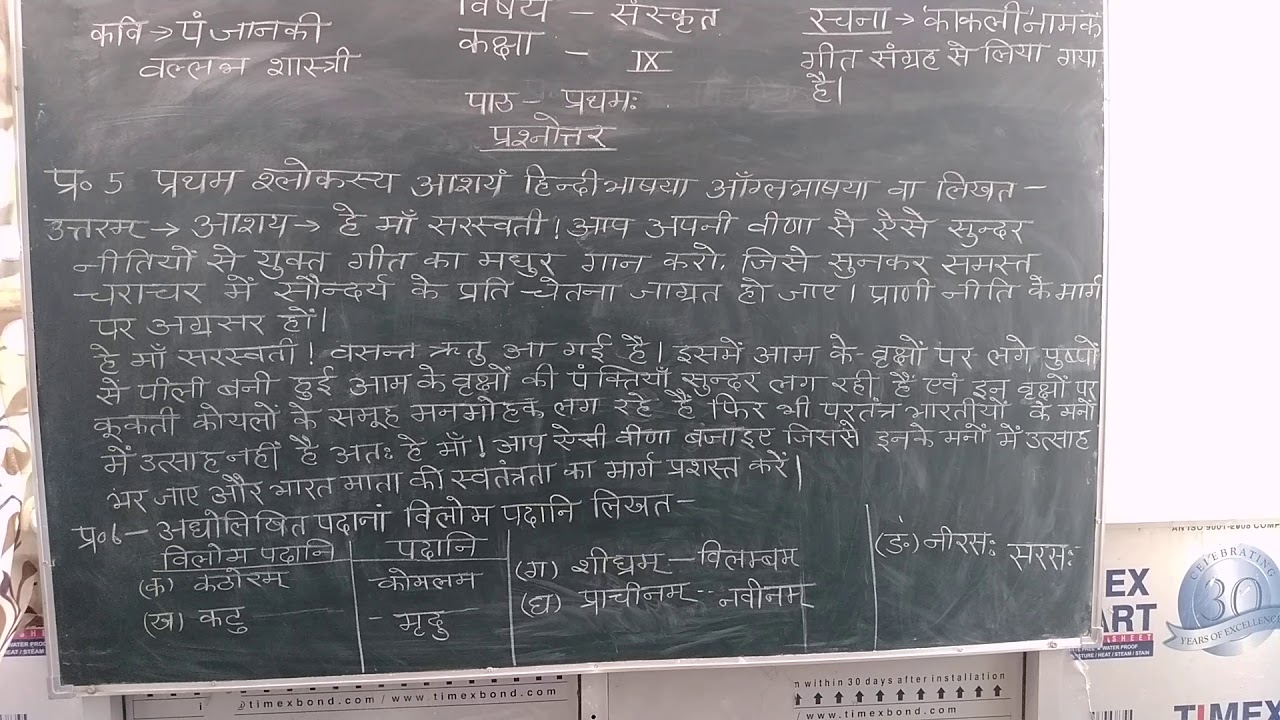 विषय - संस्कृत
कक्षा - IX
कवि → पं जानकी
वल्लभ शास्त्री
रचना → 'काकली' नामक
गीत संग्रह से लिया गया
है।
पाठ - प्रथमः
प्रश्नोत्तर
प्र॰ 5 प्रथम श्लोकस्य आशयं हिन्दीभाषया आँग्लभाषया वा लिखत -
उत्तरम → आशय → हे माँ सरस्वती! आप अपनी वीणा से ऐसे सुन्दर
नीतियों से युक्त गीत का मधुर गान करो, जिसे सुनकर समस्त
चराचर में सौन्दर्य के प्रति चेतना जाग्रत हो जाए। प्राणी नीति के मार्ग
पर अग्रसर हों।
हे माँ सरस्वती! वसन्त ऋतु आ गई है। इसमें आम के वृक्षों पर लगे पुष्पों
से पीली बनी हुई आम के वृक्षों की पंक्तियाँ सुन्दर लग रही हैं एवं इन वृक्षों पर
कूकती कोयलों के समूह मनमोहक लग रहे हैं फिर भी परतंत्र भारतीयों के मनों
में उत्साह नहीं है अतः हे माँ! आप ऐसी वीणा बजाइए जिससे इनके मनों में उत्साह
भर जाए और भारत माता की स्वतंत्रता का मार्ग प्रशस्त करें।
प्र॰6 - अधोलिखित पदानां विलोम पदानि लिखत -
विलोम पदानि पदानि
(क) कठोरम - कोमलम
(ख) कटु - मृदु
(ग) शीघ्रम - विलम्बम
(घ) प्राचीनम - नवीनम
(ङ) नीरसः सरसः
AN ISO 9001-2008 COMP
CELEBRATING
30
YEARS OF EXCELLENCE
TIMEX
timexbond.com
n within 30 days after installation
/ www.timexbond.com